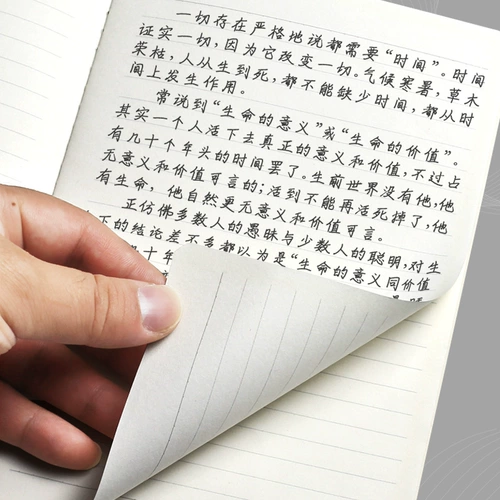 一切存在严格地说都需要“时间”。时间
证实一切,因为它改变一切。气候寒暑,草木
荣枯,人从生到死,都不能缺少时间,都从时
间上发生作用。
常说到“生命的意义”或“生命的价值”。
其实一个人活下去真正的意义和价值,不过占
有几十个年头的时间罢了。生前世界没有他,他
无意义和价值可言的;活到不能再活死掉了,他
有生命,他自然更无意义和价值可言。
正仿佛多数人的愚昧与少数人的聪明,对生
下的结论差不多都以为是“生命的意义同价值
几十年